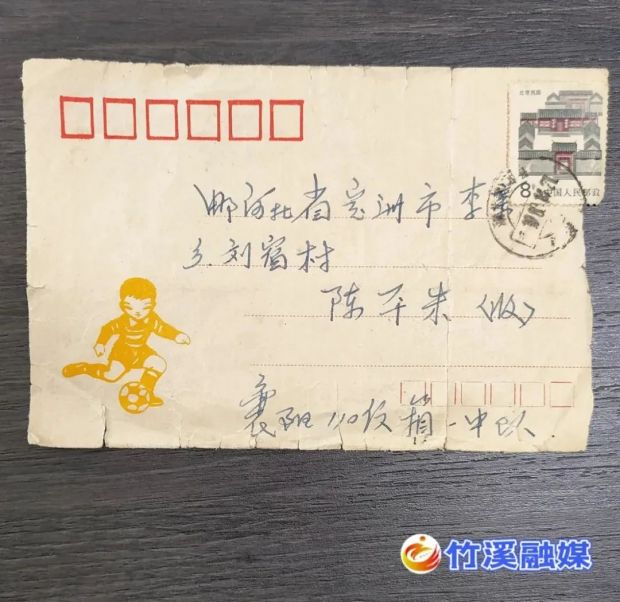 北京民居
8
中国人民邮政
邮河北省定洲市李亲
乡刘宿村
陈平来(收)
襄阳110信箱一中队
竹溪融媒